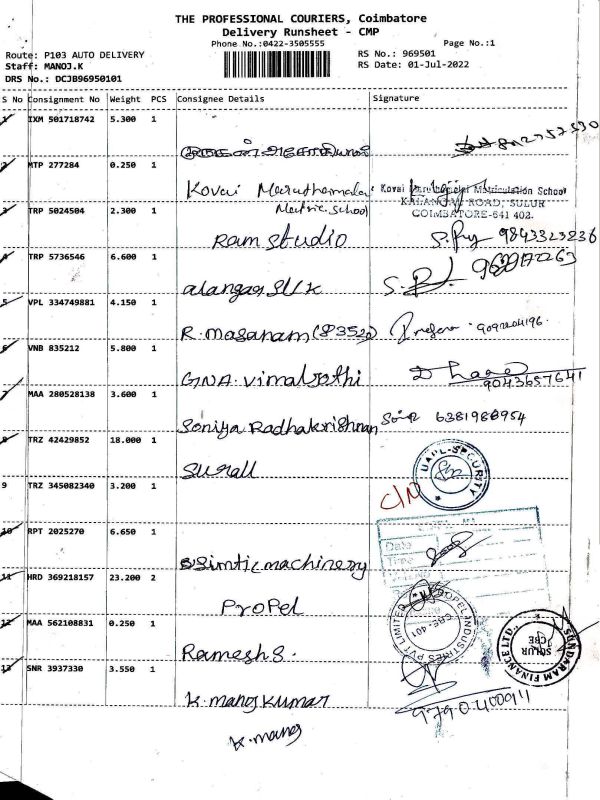 THE PROFESSIONAL COURIERS, Coimbatore
Delivery Runsheet - CMP
Phone No.:0422-3505555 Page No.:1
Route: P103 AUTO DELIVERY RS No.: 969501
Staff: MANOJ.K RS Date: 01-Jul-2022
DRS No.: DCJB96950101
S No Consignment No Weight PCS Consignee Details Signature
1 IXM 501718742 5.300 1
2 MTP 277284 0.250 1
Kovai Maruthamalai Kovai Maruthamalai Matriculation School
Matric. School KALANGAL ROAD, SULUR
COIMBATORE-641 402.
3 TRP 5024504 2.300 1
Ram studio 9843323236
4 TRP 5736546 6.600 1
5 VPL 334749881 4.150 1
R. Masanam (83520)
6 VNB 835212 5.800 1
GNA. Vimal Jothi 9043657641
7 MAA 280528138 3.600 1
Soniya Radhakrishnan 6381988954
8 TRZ 42429852 18.000 1
UAPL-SECURITY
9 TRZ 345082340 3.200 1
C/N
Date
Time
10 RPT 2025270 6.650 1
Simtic machinery
11 HRD 369218157 23.200 2
Propel PROPEL INDUSTRIES PVT. LIMITED
CBE-401
12 MAA 562108831 0.250 1
Ramesh S. SUNDARAM FINANCE LTD.,
SULUR
CBE
13 SNR 3937330 3.550 1
K. Manoj Kumar
K. Manoj